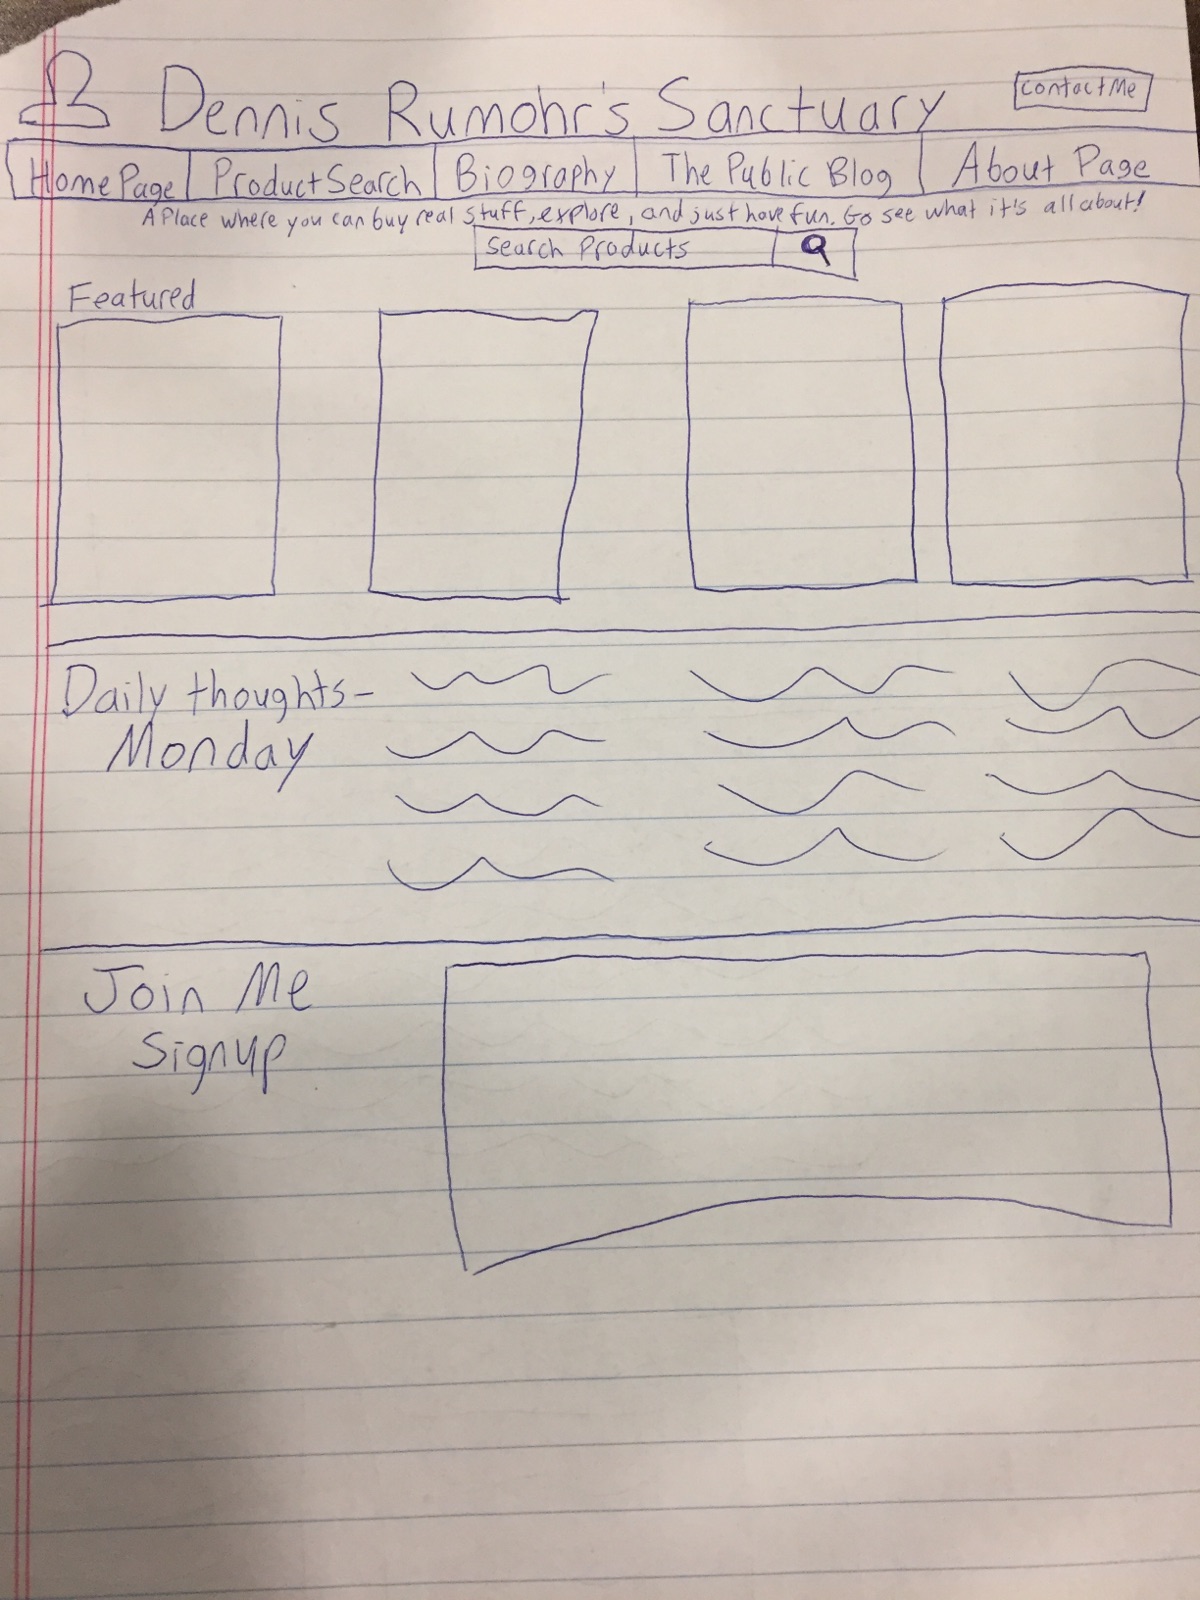 Dennis Rumohr's Sanctuary
Contact Me
Home Page Product Search Biography The Public Blog About Page
A Place where you can buy real stuff, explore, and just have fun. Go see what it's all about!
Search Products
Featured
Daily thoughts-
Monday
Join Me
Signup